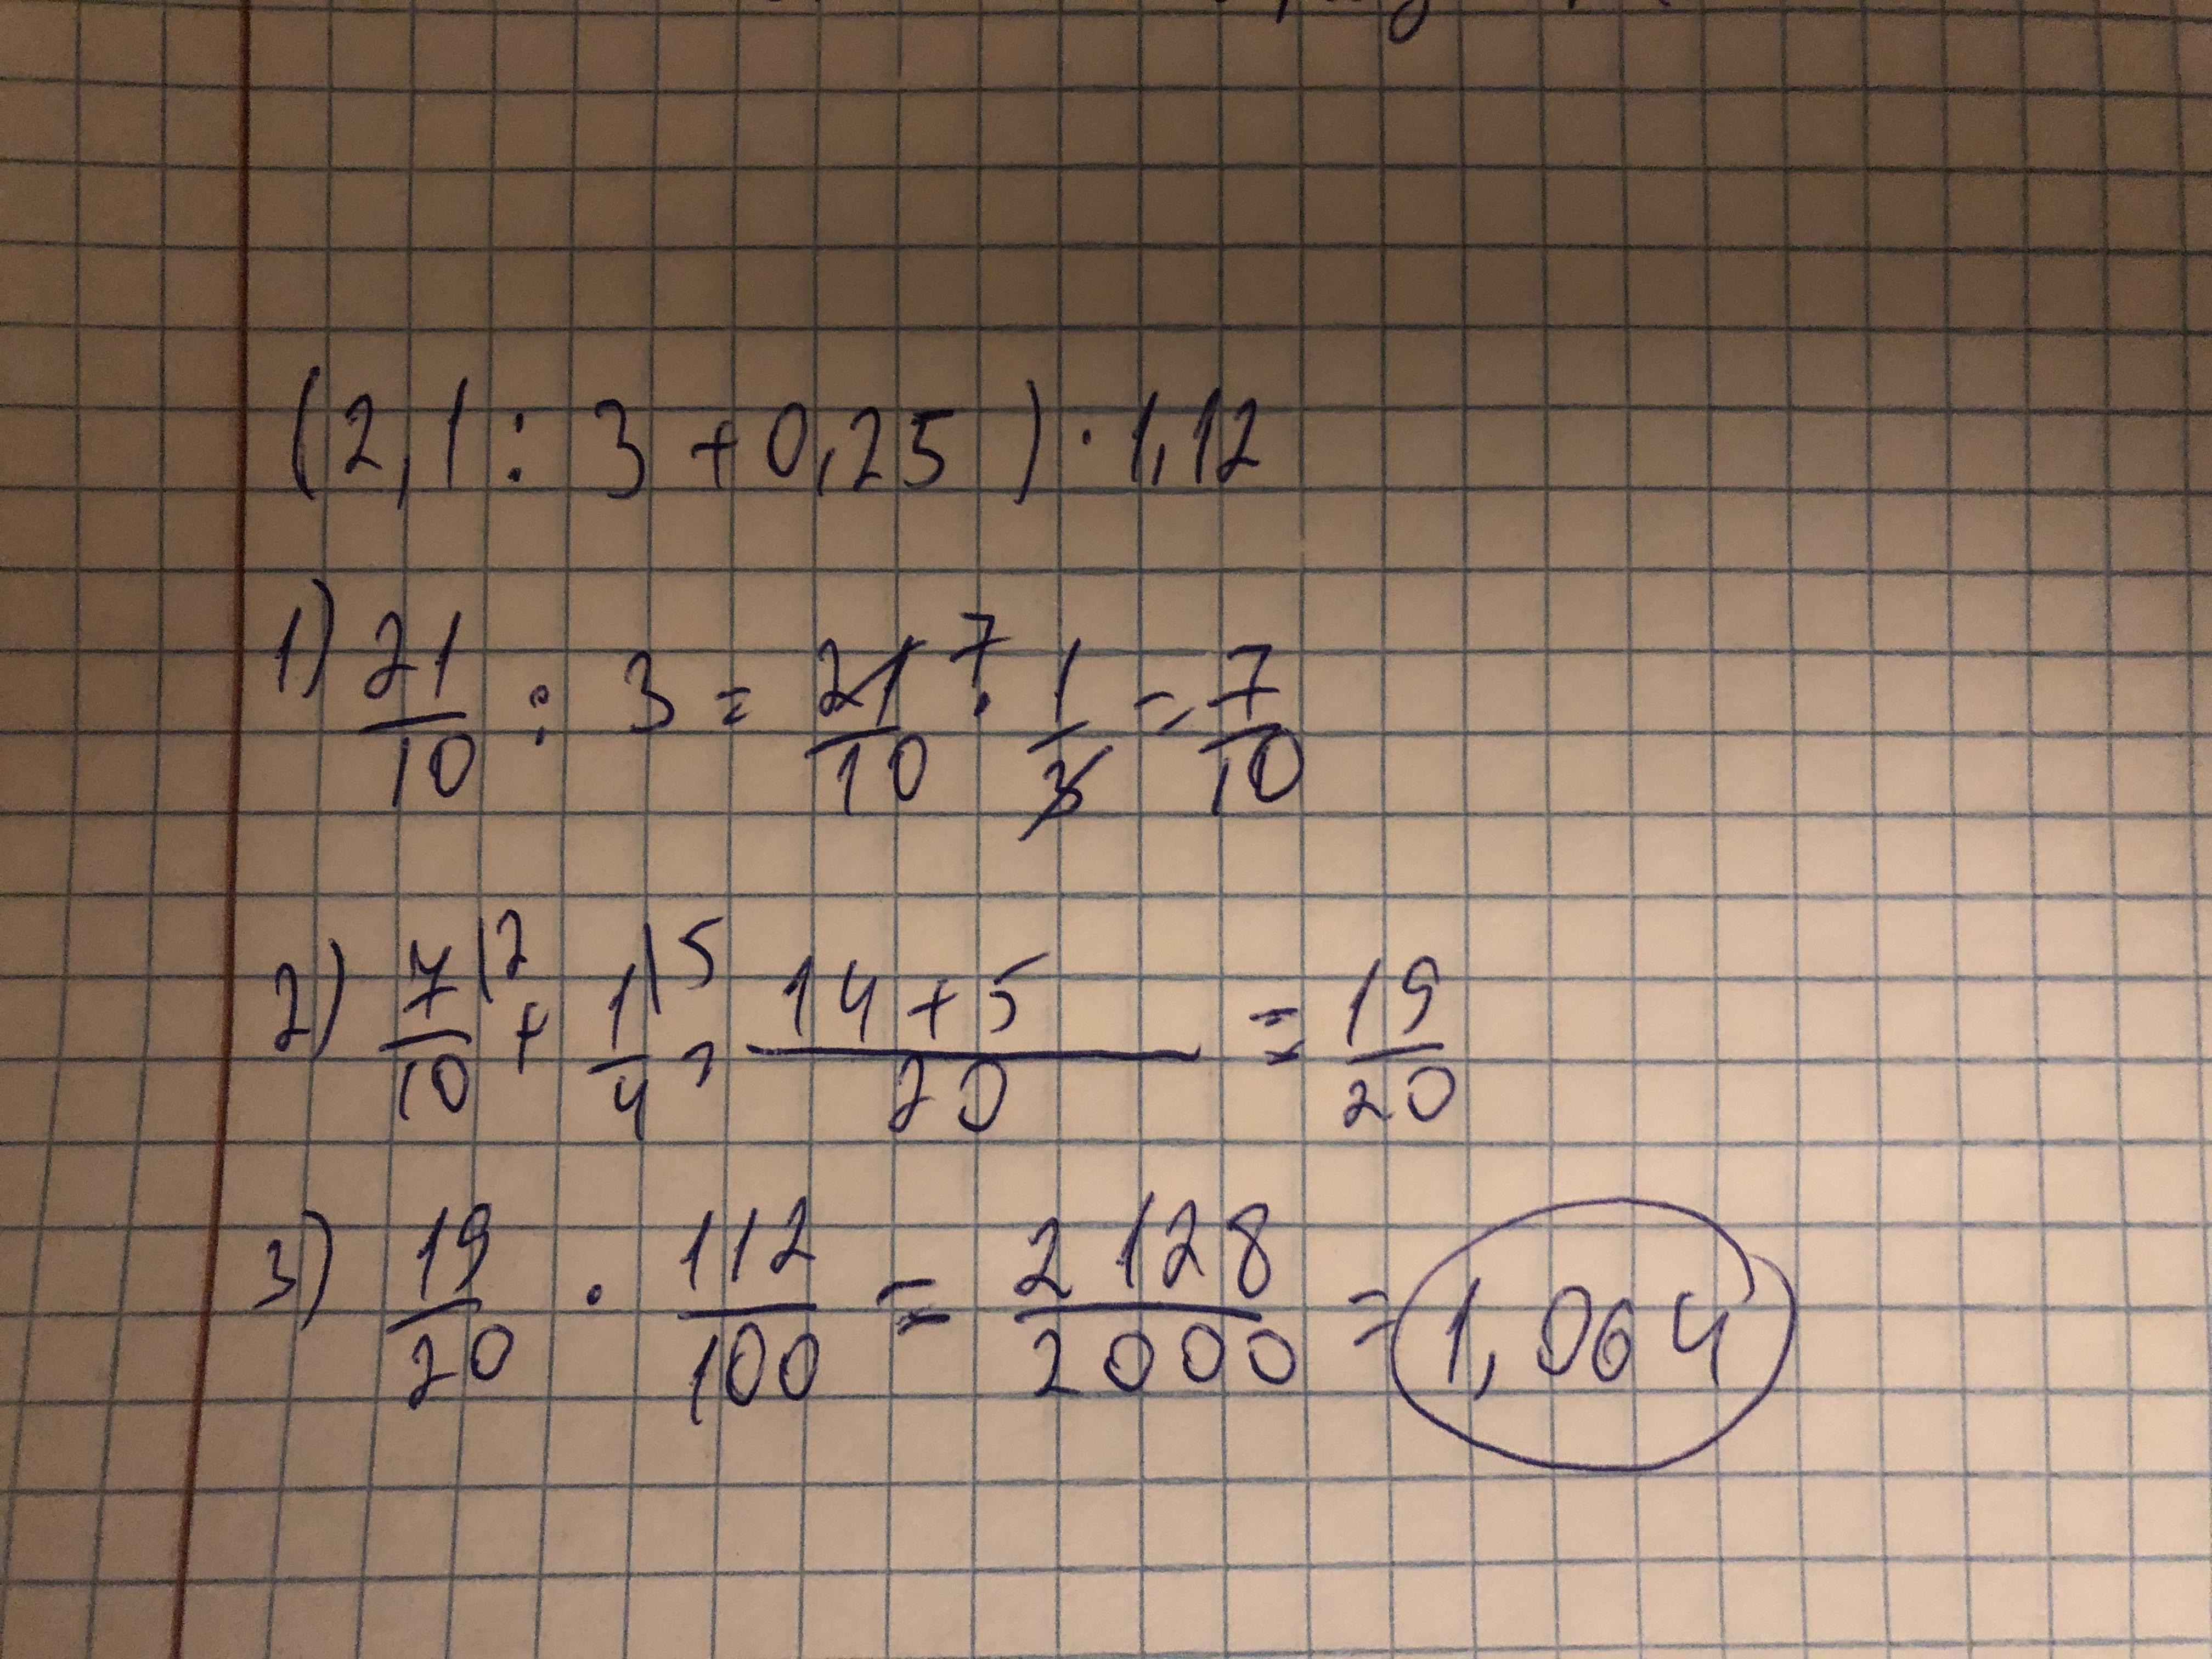 (2,1 : 3 + 0,25) · 1,12
1) 21/10 : 3 = 21/10 7 · 1/3 = 7/10
2) 7/10 |2 + 1/4 |5 = 14 + 5/20 = 19/20
3) 19/20 · 112/100 = 2128/2000 = 1,064